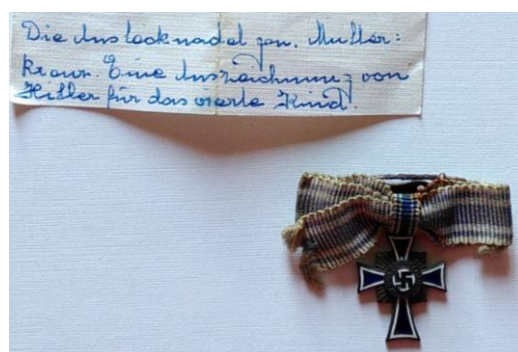 Die Anstecknadel gen. Mutter:
kreuz. Eine Auszeichnung von
Hitler für das vierte Kind.